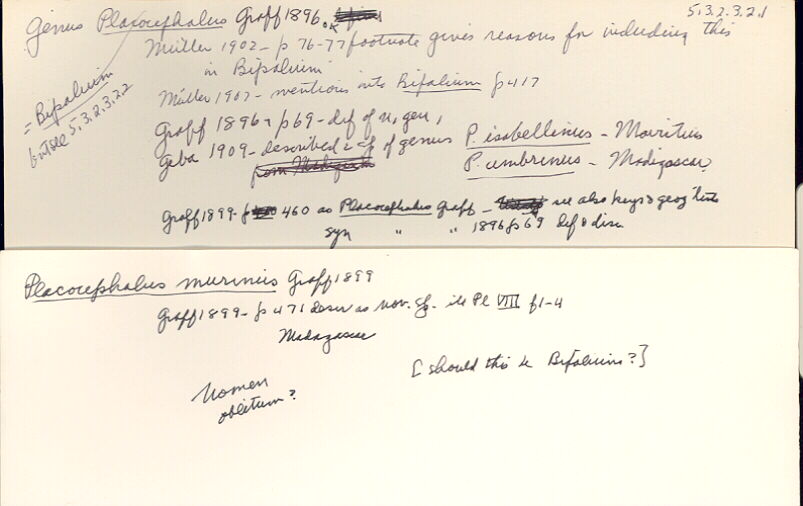 5.3.2.3.2.1
Genus Placocephalus Graff 1896.
Müller 1902 - p 76-77 footnote gives reasons for including this
in Bipalium
= Bipalium
but see 5.3.2.3.2.2
Müller 1907 - mentions into Bipalium p 417
Graff 1896 - p 69 - def of n. gen,
Geba 1909 - described 2 sp of genus P. isabellinus - Mauritius
P. umbrinus - Madagascar
Graff 1899 - p 460 as Placocephalus Graff - see also keys & geog lists
syn " " 1896 p 69 def & disc
Placocephalus murinus Graff 1899
Graff 1899 - p 471 descr as nov. sp. ill Pl VIII f 1-4
Madagascar
[should this be Bipalium?]
Nomen
oblitum?